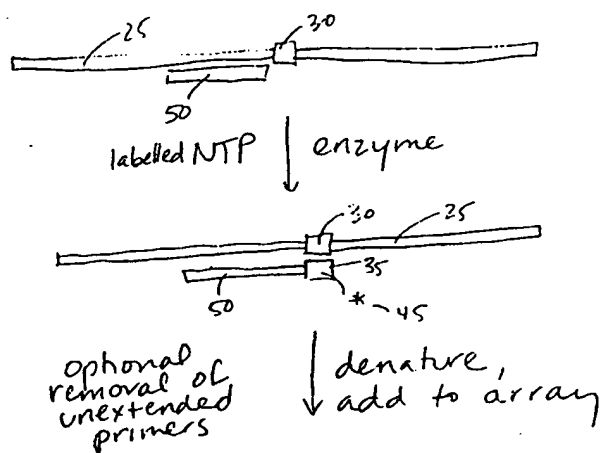 25
30
50
labelled NTP
enzyme
30
25
50
35
* 45
optional
removal of
unextended
primers
denature,
add to array